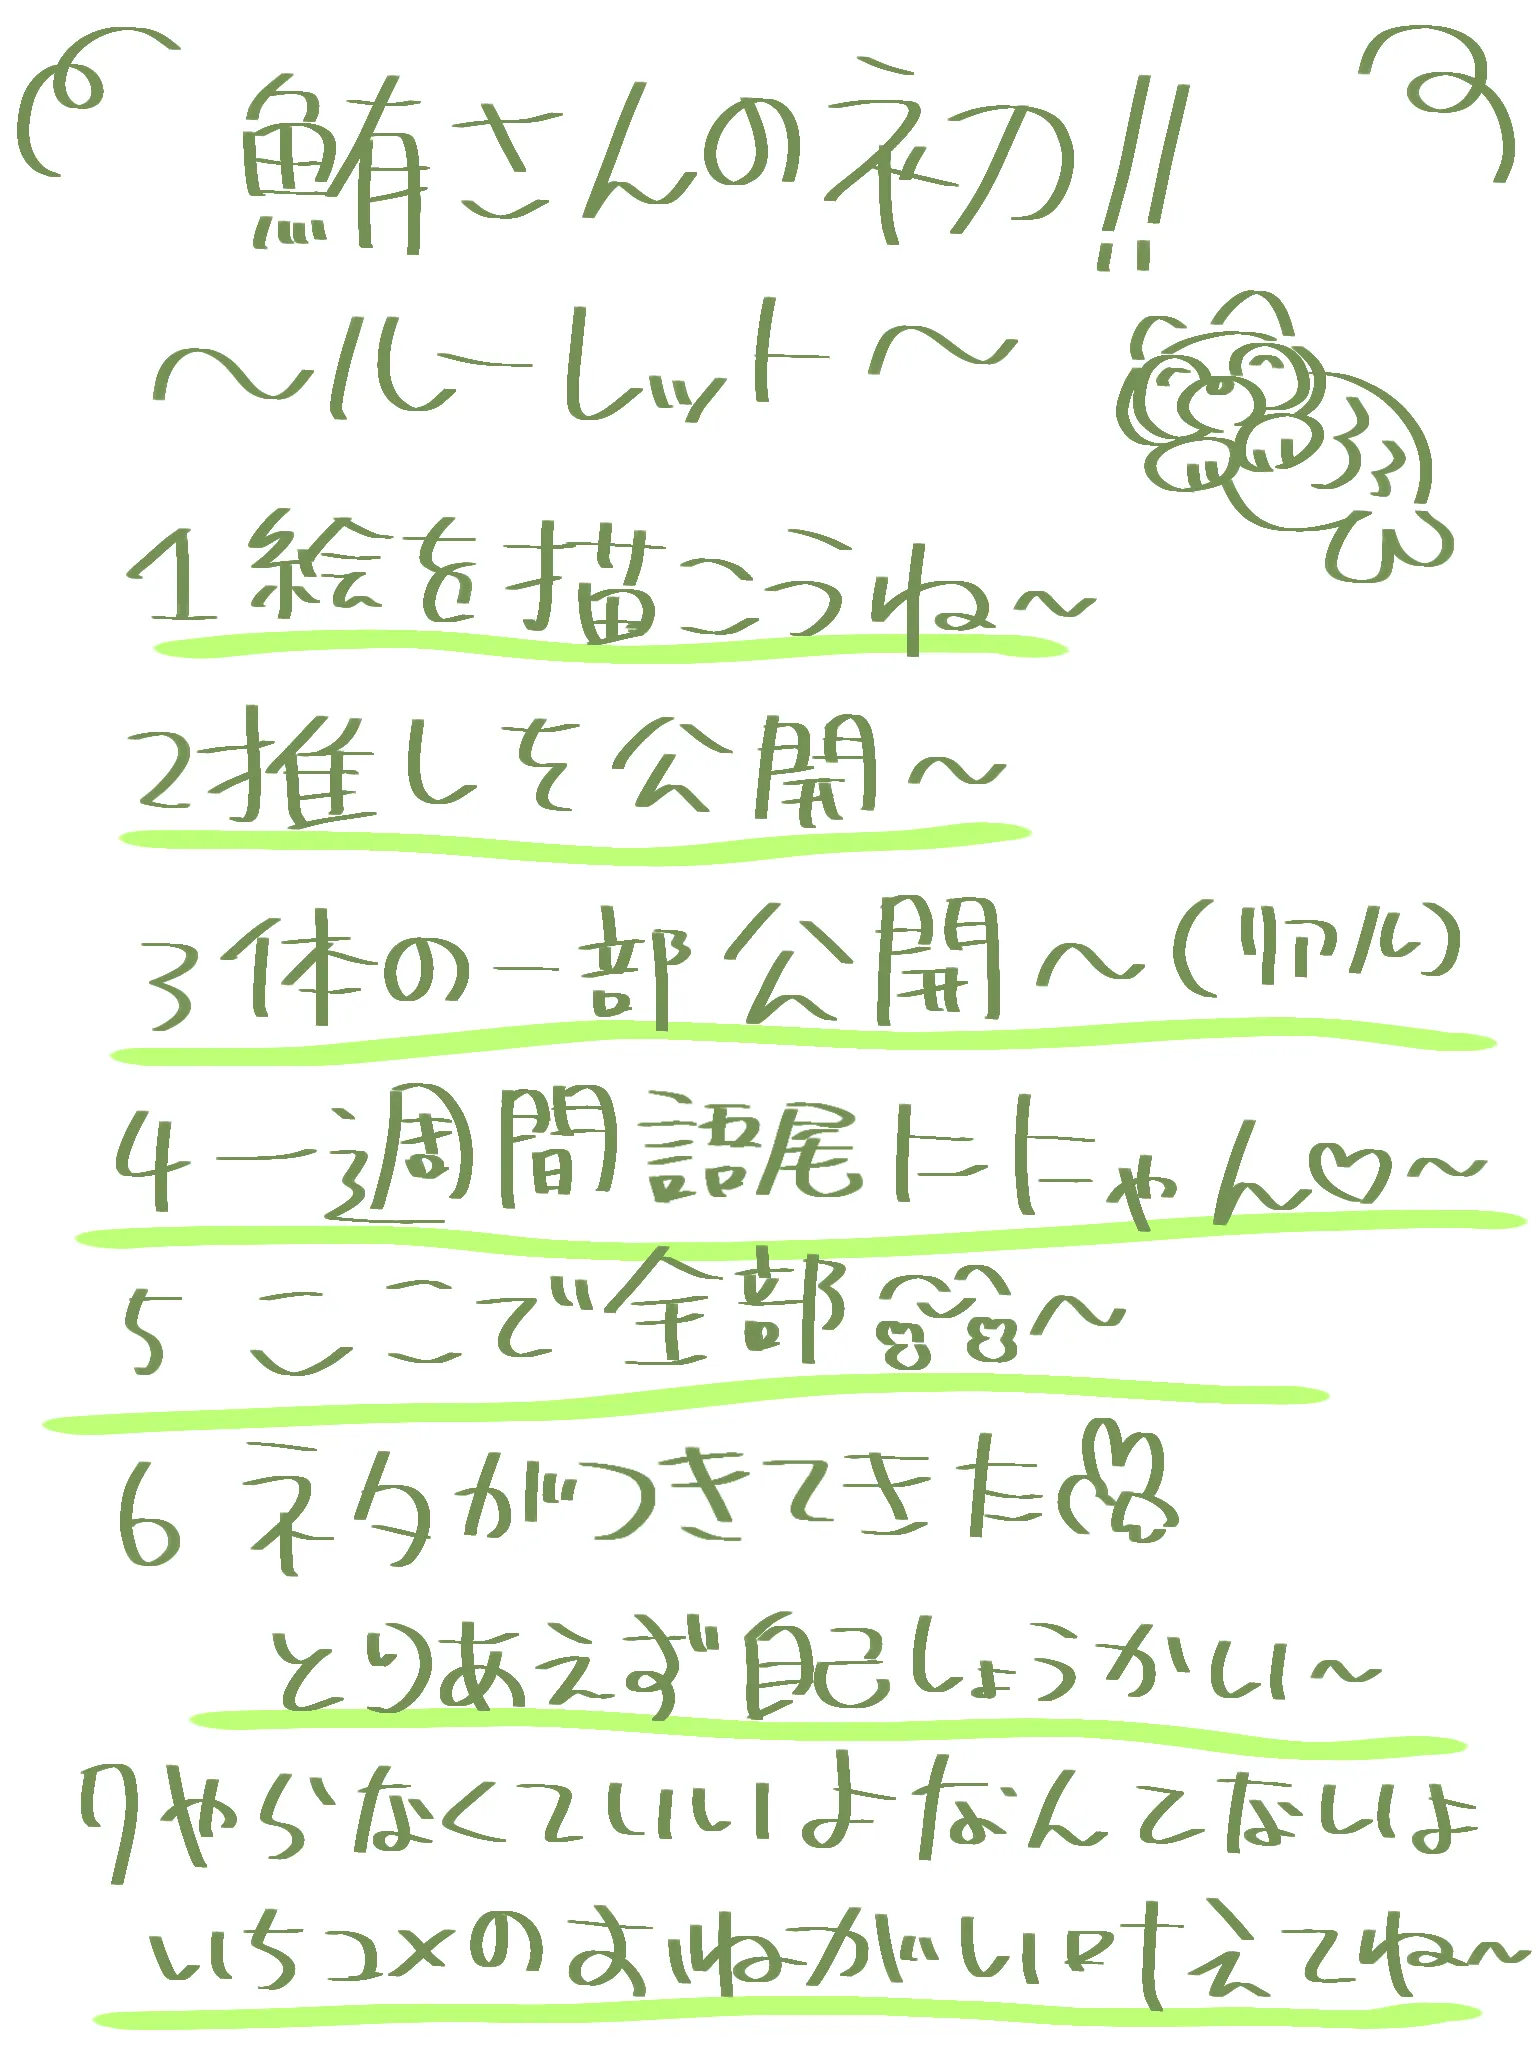 鮪さんの初!!
〜ルーレット〜
1絵を描こうね〜
2推して公開〜
3体の一部公開〜(リアル)
4一週間語尾ににゃん♡〜
5ここで全部〜
6ネタがつきてきた
とりあえず自己しょうかい〜
7やらなくていいよなんてないよ
いちコメのおねがい叶えてね〜